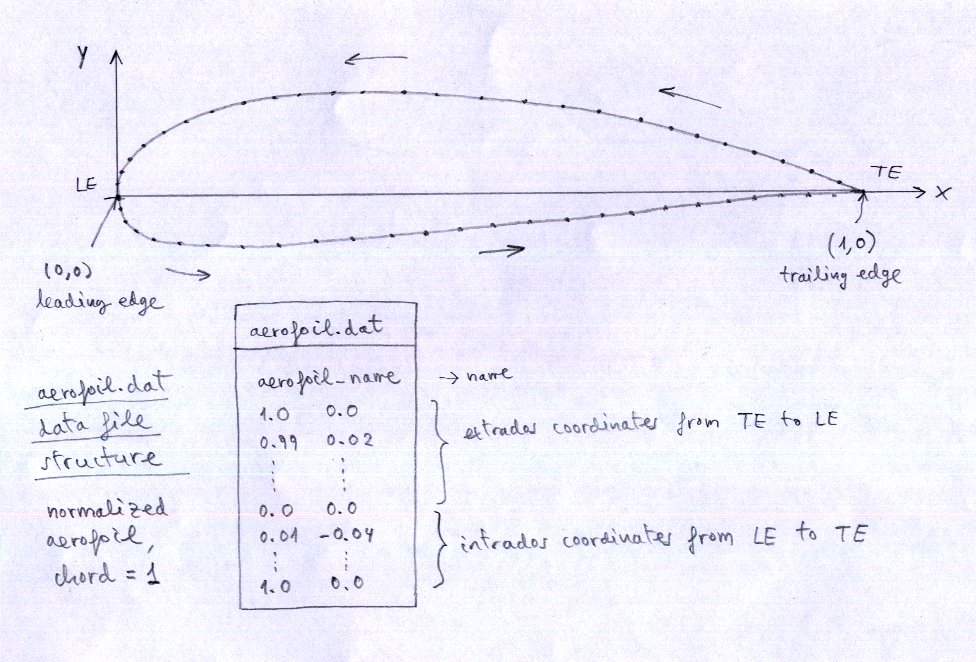 y
LE
TE
x
(0,0)
leading edge
(1,0)
trailing edge
aerofoil.dat
data file
structure
normalized
aerofoil,
chord = 1
aerofoil.dat
aerofoil_name → name
1.0 0.0
0.99 0.02
extrados coordinates from TE to LE
0.0 0.0
0.01 -0.04
intrados coordinates from LE to TE
1.0 0.0